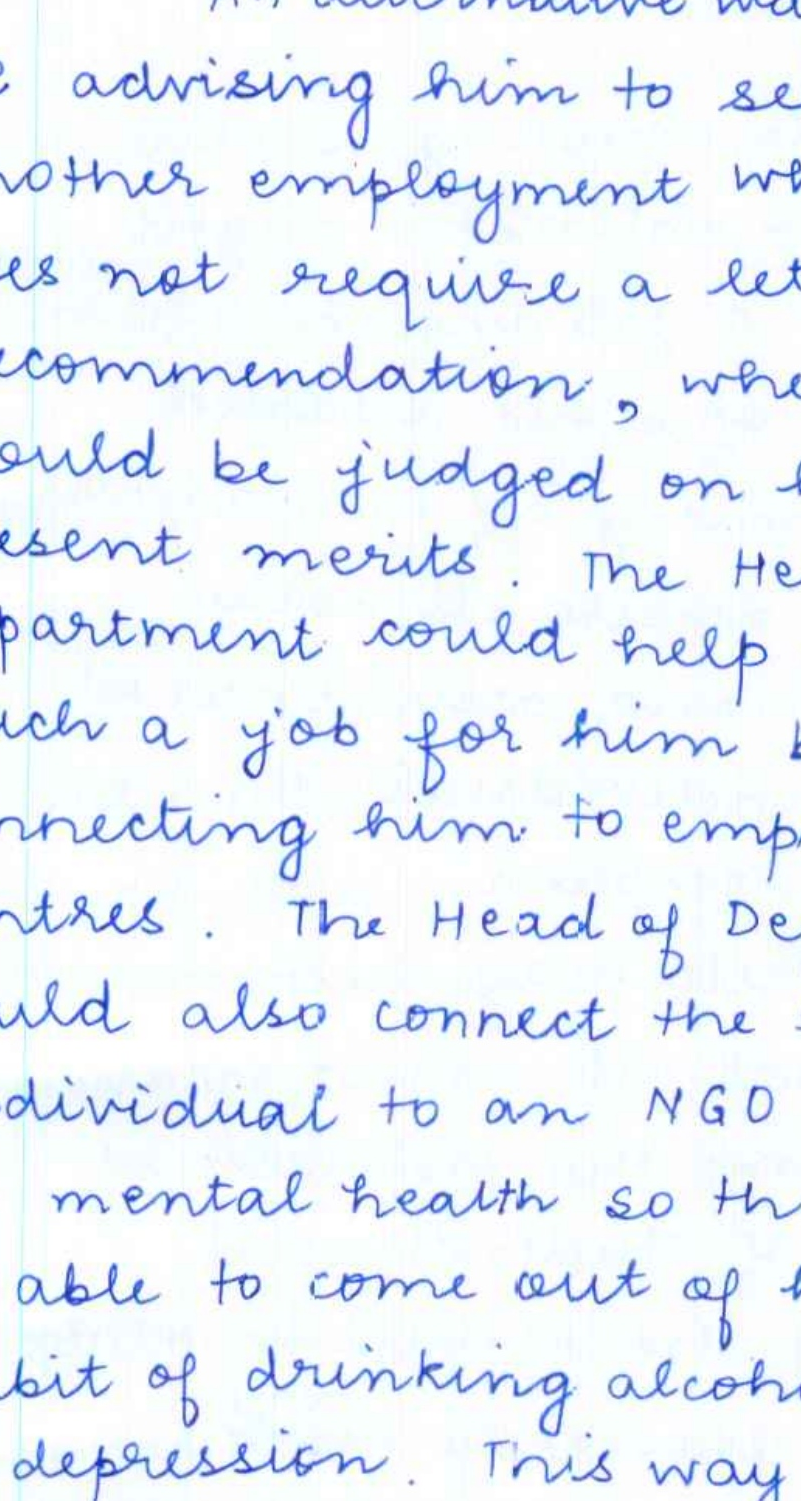 alternative
advising him to se
nother employment wh
es not require a let
ecommendation, whe
ould be judged on h
esent merits. The He
partment could help
uch a job for him b
nnecting him to emp
ntres. The Head of De
uld also connect the
dividual to an NGO
mental health so th
able to come out of h
bit of drinking alcoh
depression. This way